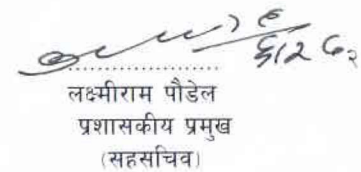 लक्ष्मीराम पौडेल
प्रशासकीय प्रमुख
(सहसचिव)